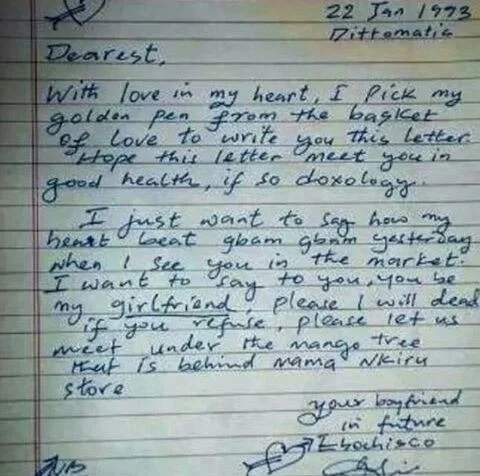 22 Jan 1993
Dittomatic
Dearest,
With love in my heart, I pick my
golden pen from the basket
of love to write you this letter.
Hope this letter meet you in
good health, if so doxology.
I just want to say how my
heart beat gbam gbam yesterday
when I see you in the market.
I want to say to you, you be
my girlfriend, please I will dead
if you refuse, please let us
meet under the mango tree
that is behind mama Nkiru
store
your boyfriend
in future
Ebochisco
NB